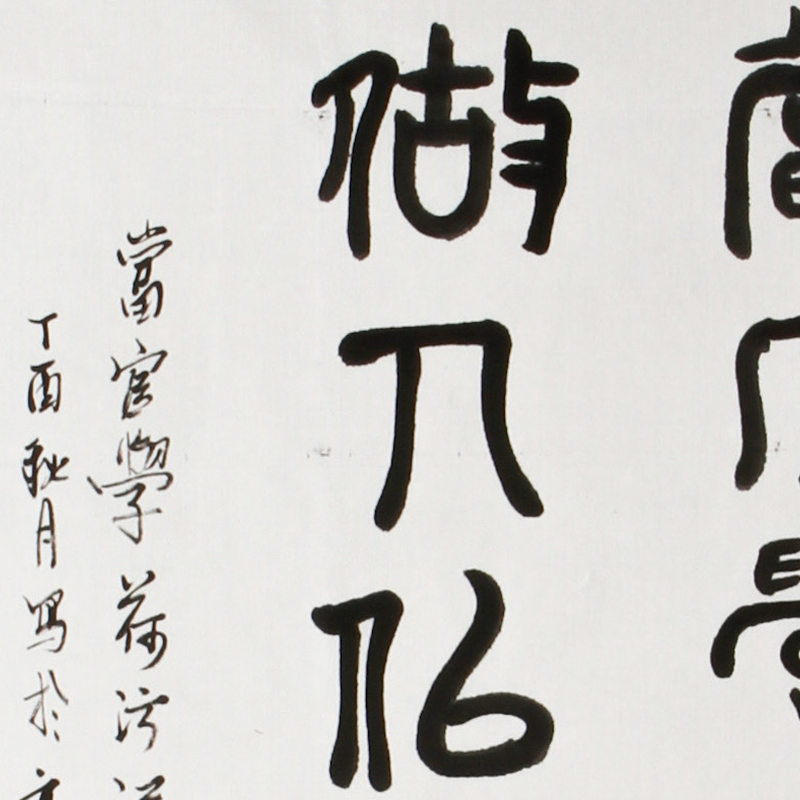 做人似
當官學荷污
丁酉秋月寫於